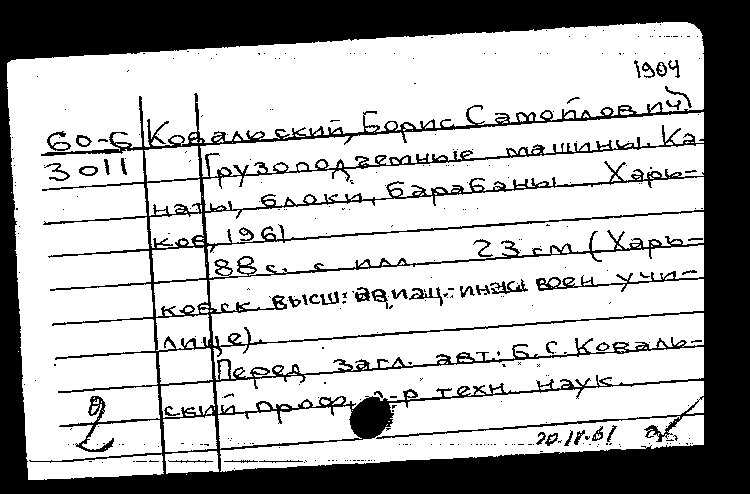 1904
60-6 Ковальский, Борис Самойлович
3011 Грузоподъемные машины. Ка-
наты, блоки, барабаны. Харь-
ков, 1961
88 с. с илл. 23 см (Харь-
ковск. высш. авиац.-инж. воен учи-
лище).
Перед загл. авт.: Б. С. Коваль-
ский, проф., д-р техн. наук.
2
20.IV.61